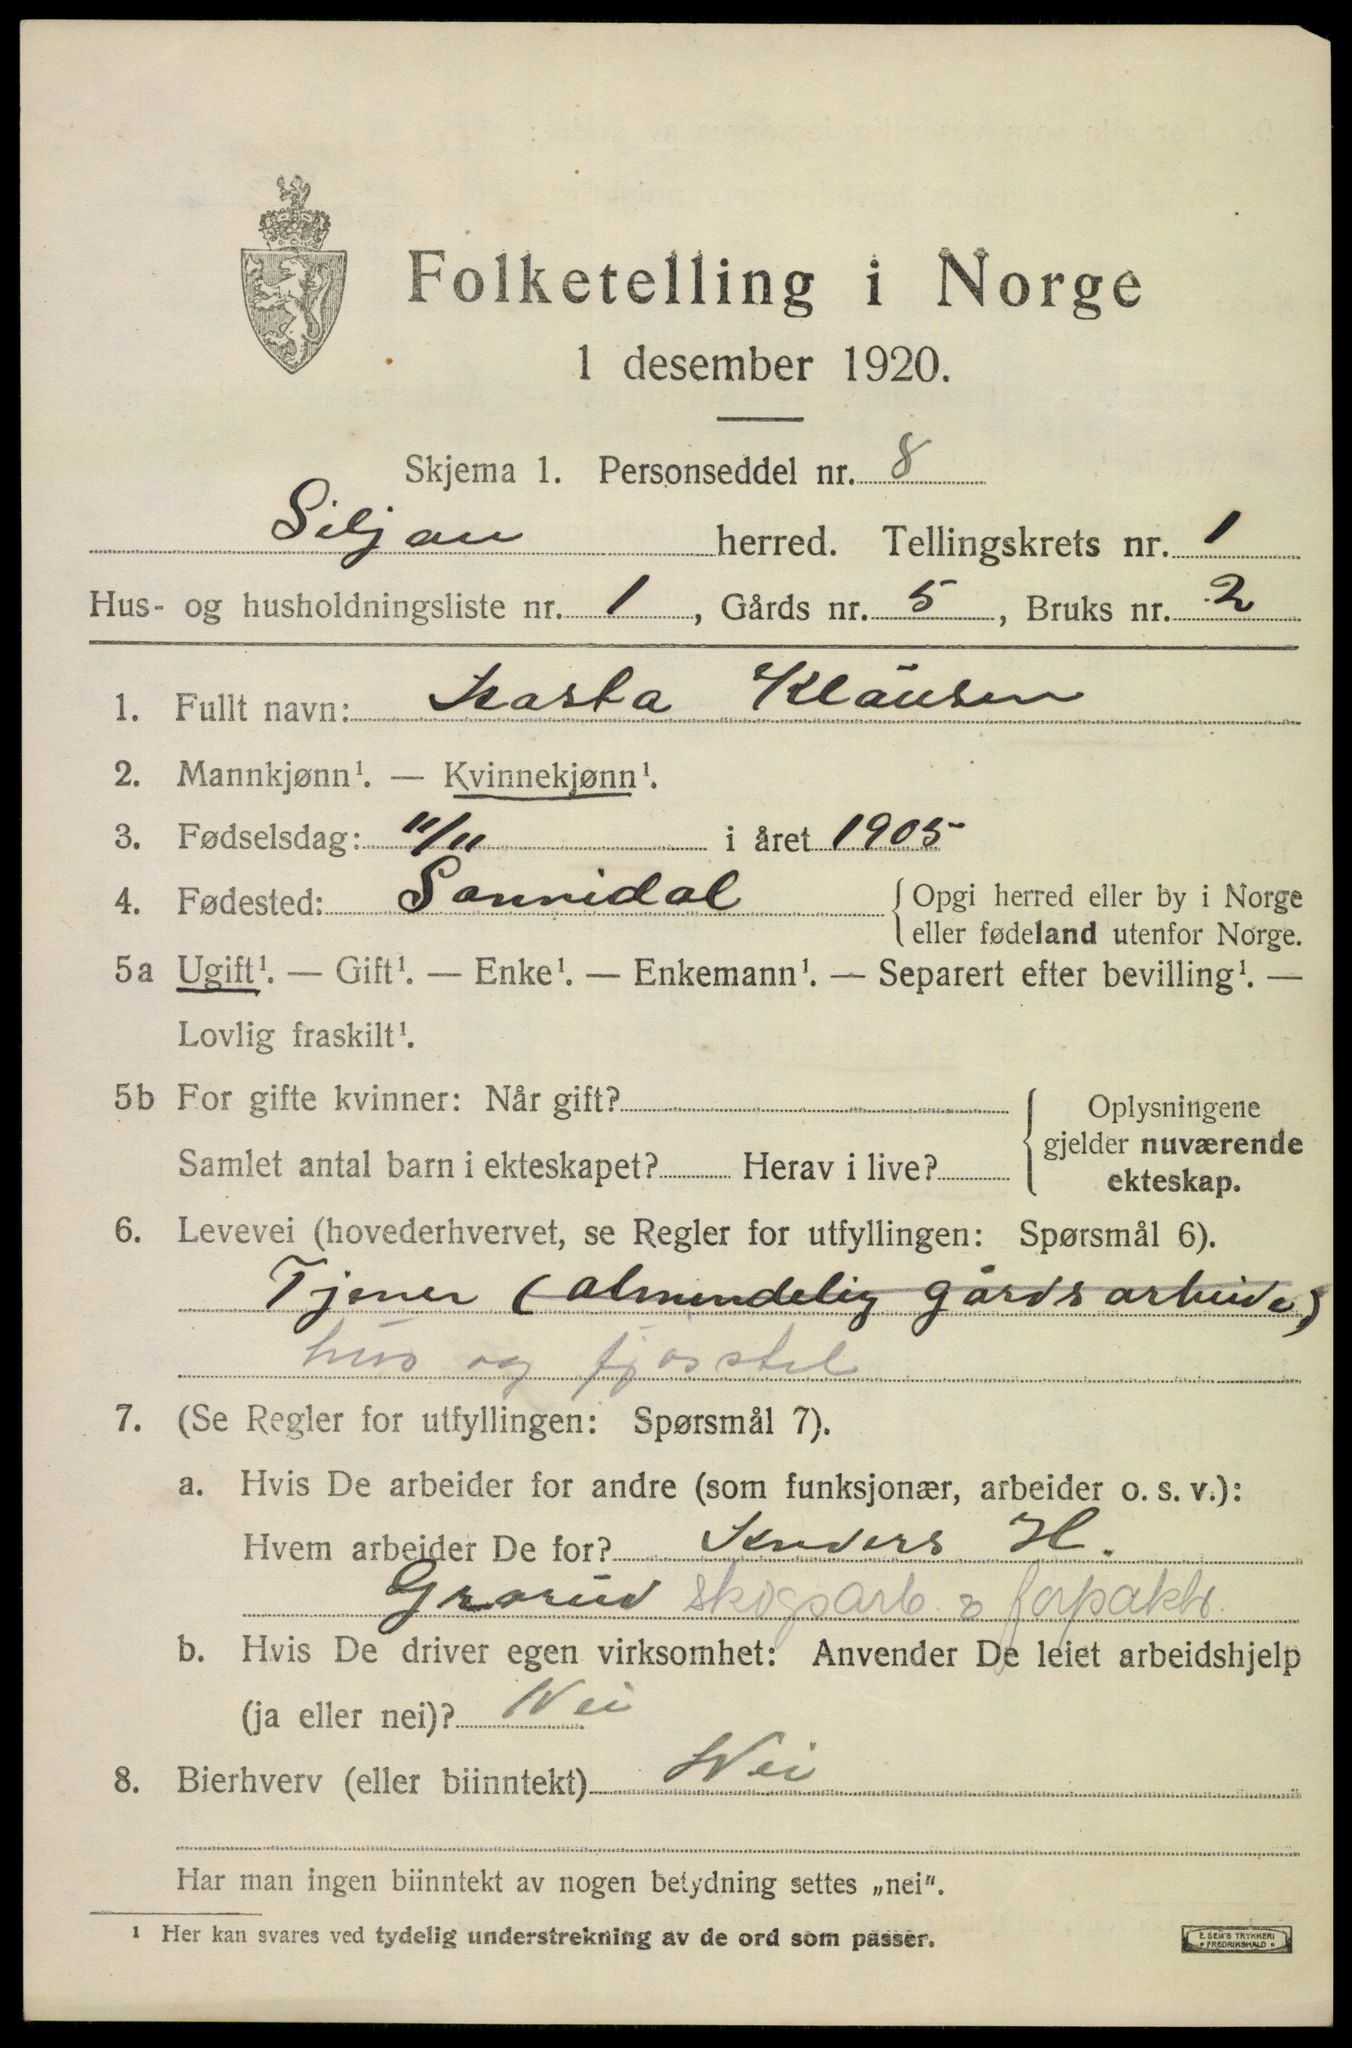 Folketelling i Norge
1 desember 1920.
Skjema 1. Personseddel nr. 8
Siljan herred. Tellingskrets nr. 1
Hus- og husholdningsliste nr. 1, Gårds nr. 5, Bruks nr. 2
1. Fullt navn: Klausen
2. Mannkjønn¹. — Kvinnekjønn¹.
3. Fødselsdag: 11/11 i året 1905
4. Fødested: Sannidal { Opgi herred eller by i Norge
eller fødeland utenfor Norge.
5a Ugift¹. — Gift¹. — Enke¹. — Enkemann¹. — Separert efter bevilling¹. —
Lovlig fraskilt¹.
5b For gifte kvinner: Når gift? { Oplysningene
gjelder nuværende
ekteskap.
Samlet antal barn i ekteskapet? Herav i live?
6. Levevei (hovederhvervet, se Regler for utfyllingen: Spørsmål 6).
Tjener (almindelig gårdsarbeide)
hus og fjøsstel
7. (Se Regler for utfyllingen: Spørsmål 7).
a. Hvis De arbeider for andre (som funksjonær, arbeider o. s. v.):
Hvem arbeider De for? Anders H.
Grorud skogsarb. & forpakter
b. Hvis De driver egen virksomhet: Anvender De leiet arbeidshjelp
(ja eller nei)? Nei
8. Bierhverv (eller biinntekt) Nei
Har man ingen biinntekt av nogen betydning settes „nei".
¹ Her kan svares ved tydelig understrekning av de ord som passer.
E. SEM'S TRYKKERI
FREDRIKSHALD